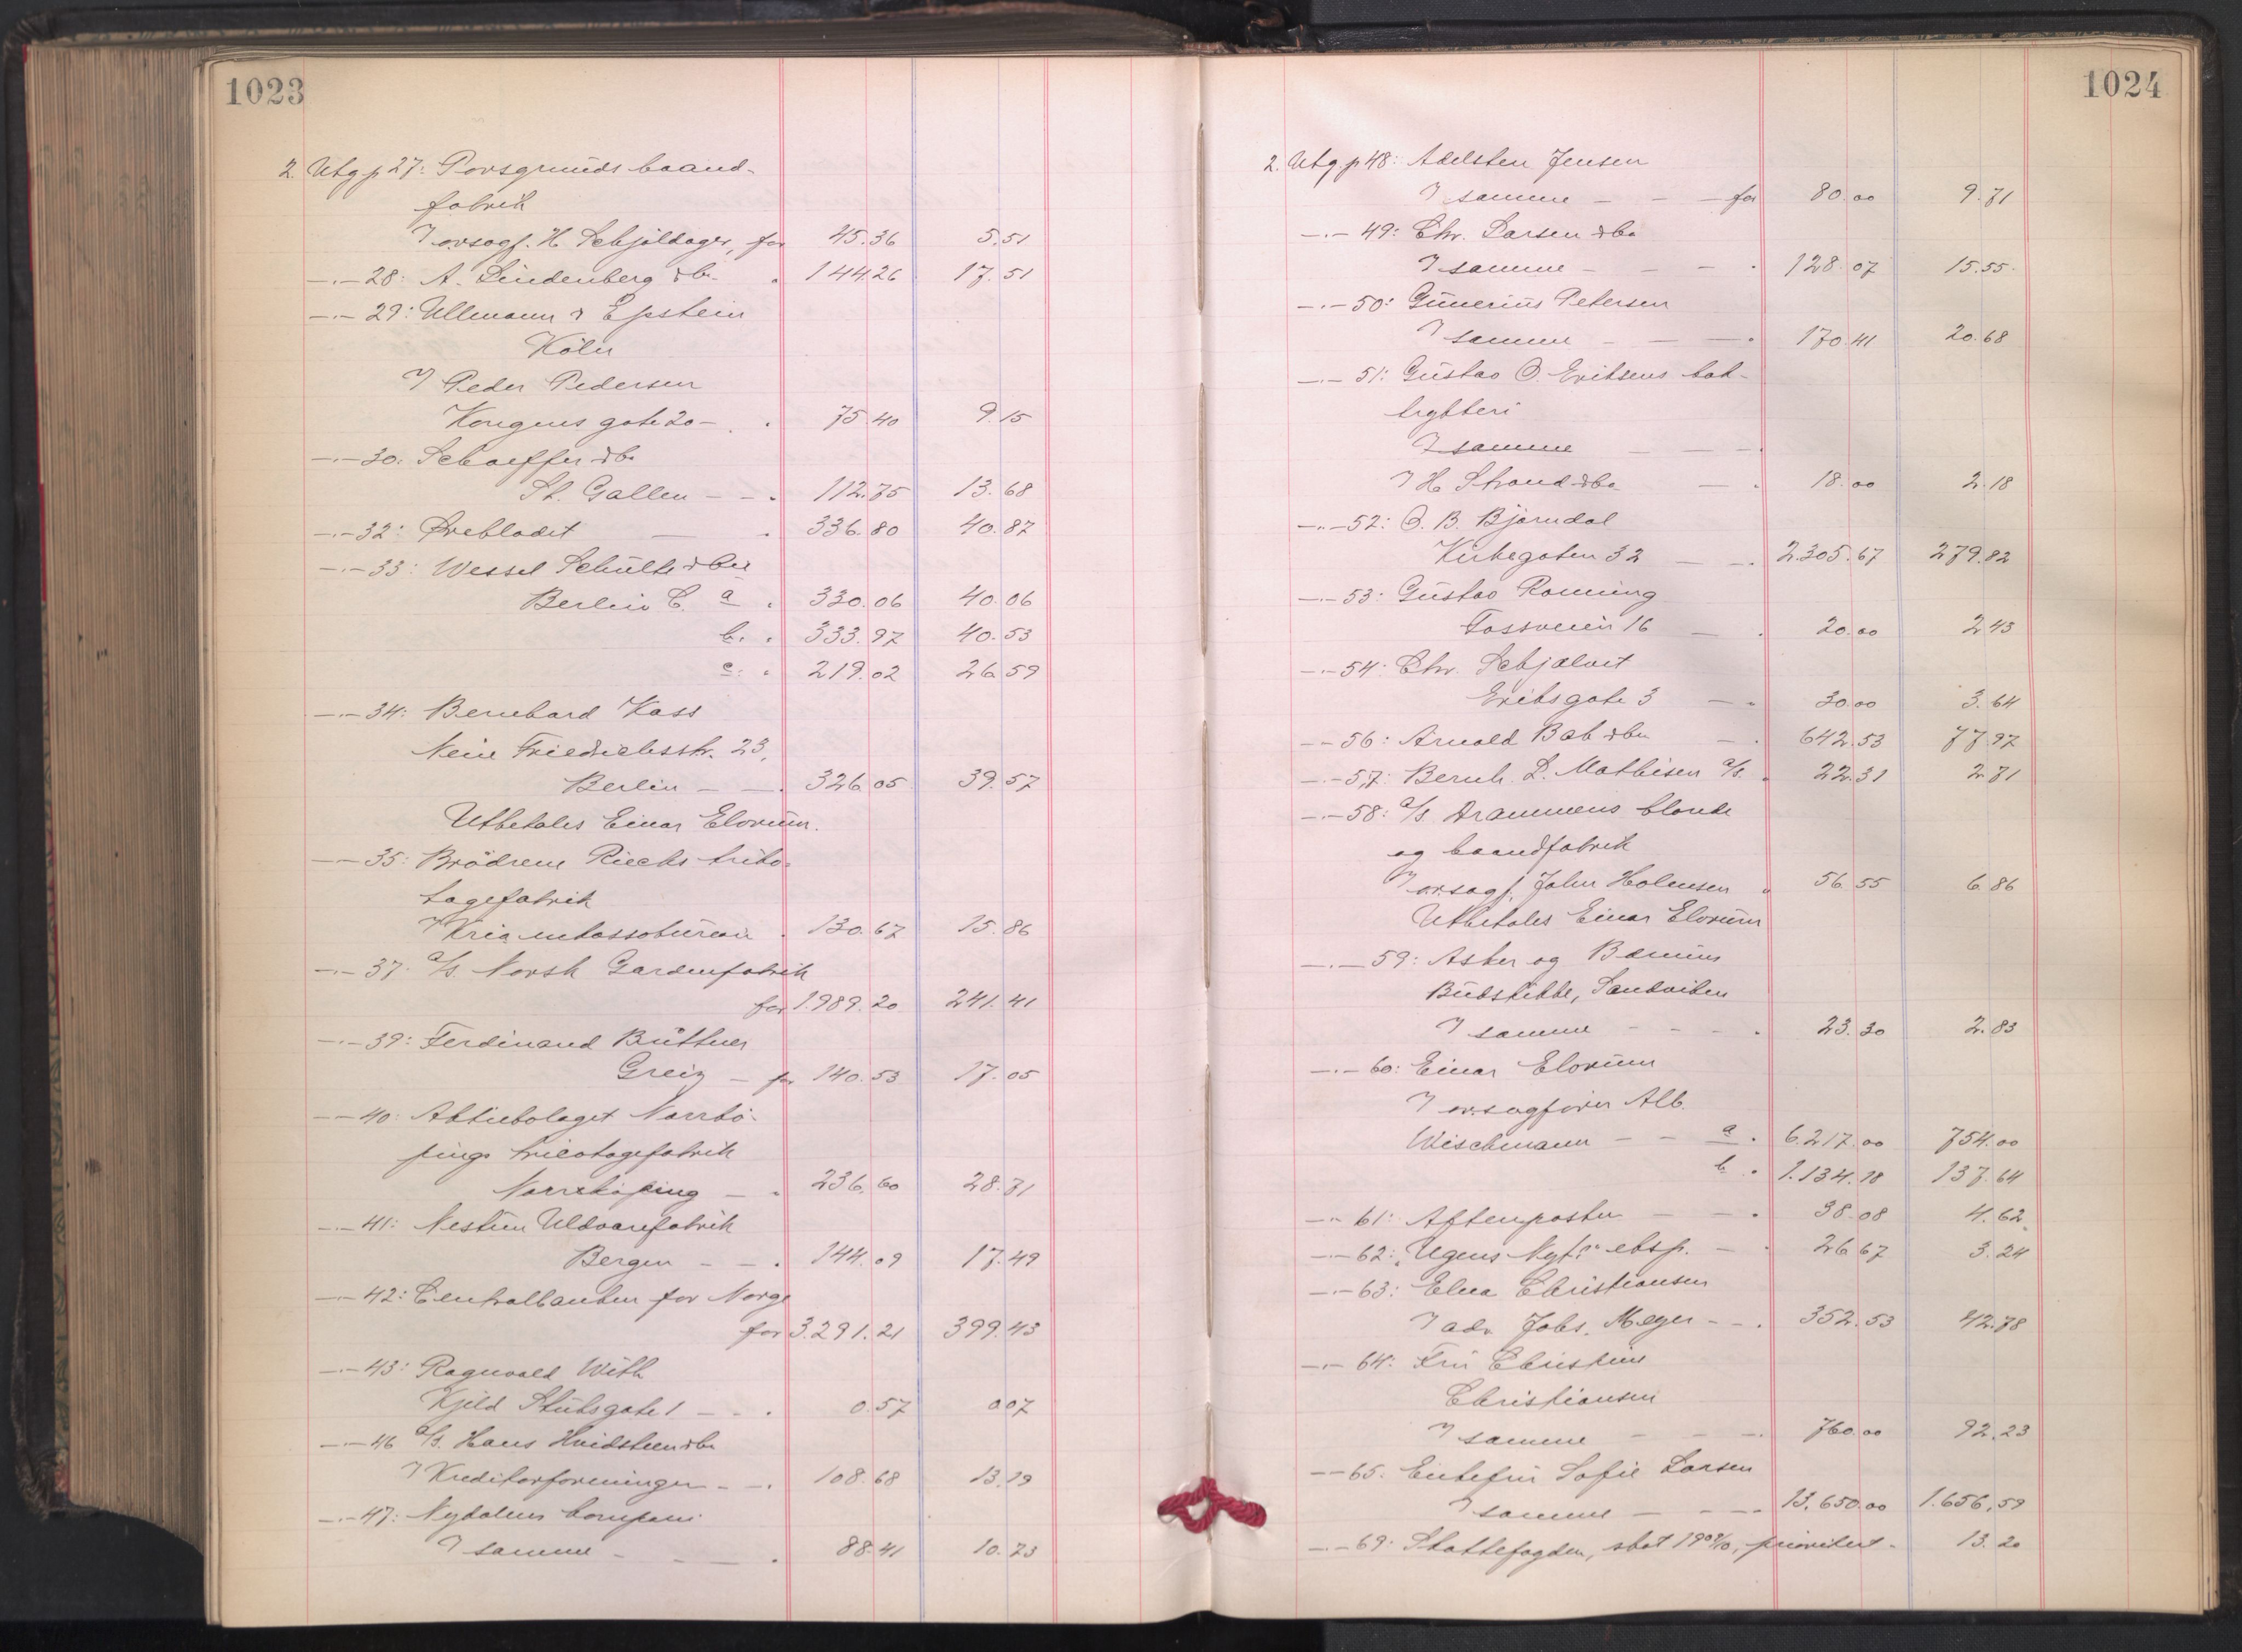 1023
2. Utg. p 27: Porsgrunds baand-
fabrik
v/ o.r.sagf. H. Schjöldager, for 45.36 5.51
—.— 28: A. Lindenberg & Co. " 144.26 17.51
—.— 29: Ullmann & Epstein
Köln
v/ Peder Pedersen
Kongens gate 20 — " 75.40 9.15
—.— 30: Schaeffer & Co.
St. Gallen — — " 112.75 13.68
—.— 32: Ørebladet — " 336.80 40.87
—.— 33: Wessel Schulte & Cie
Berlin C. a " 330.06 40.06
b. " 333.97 40.53
c. " 219.02 26.59
—.— 34: Bernhard Kass
Neue Friedrichsstr. 23,
Berlin — — " 326.05 39.57
Utbetales Einar Elorum.
—.— 35: Brödrene Riechs triko-
tagefabrik
v/ Kria inkassobureau " 130.67 15.86
—.— 37: a/s. Norsk Gardinfabrik
for 1.989.20 241.41
—.— 39: Ferdinand Büttner
Greiz — for 140.53 17.05
—.— 40: Aktiebolaget Norrkö-
pings tricotagefabrik
Norrköping — " 236.60 28.71
—.— 41: Nestun Uldvarefabrik
Bergen — — " 144.09 17.49
—.— 42: Centralbanken for Norge
for 3.291.21 399.43
—.— 43: Ragnvald With
Kjeld Stubsgate 1 — — " 0.57 0.07
—.— 46 a/s. Hans Hvidsteen & Co.
v/ Kreditorforeningen — — " 108.68 13.19
—.— 47: Nydalens kompani
v/ samme — — — " 88.41 10.73
1024
2. Utg. p 48: Adelsten Jensen
v/ samme — — — for 80.00 9.71
—.— 49: Chr. Larsen & Co.
v/ samme — — — " 128.07 15.55
—.— 50: Gunerius Petersen
v/ samme — — — " 170.41 20.68
—.— 51: Gustav O. Eriksens bok-
trykkeri
v/ samme — — — "
v/ H. Strand & Co. — " 18.00 2.18
—.— 52: O. B. Bjørndal
Kirkegaten 32 — — " 2.305.67 279.82
—.— 53: Gustav Rønning
Fossveien 16 — " 20.00 2.43
—.— 54: Chr. Schjølset
Eriksgate 3 — " 30.00 3.64
—.— 56: Arnold Bab & Co. — " 642.53 77.97
—.— 57: Bernh. L. Mathisen a/s. " 22.31 2.71
—.— 58: a/s. Drammens blonde
og baandfabrik
v/ o.r.sagf. John Holmsen " 56.55 6.86
Utbetales Einar Elorum
—.— 59: Asker og Bærums
Budstikke, Sandviken
v/ samme — — — " 23.30 2.83
—.— 60: Einar Elorum
v/ o.r.sagfører Alb.
Wischmann — — a. " 6.217.00 754.00
b. " 1.134.18 137.64
—.— 61: Aftenposten — — " 38.08 4.62
—.— 62: "Ugens Nyt's" eksp. — " 26.67 3.24
—.— 63: Elna Christiansen
v/ adv. Johs. Meyer — — " 352.53 42.78
—.— 64: Fru Christine
Christiansen
v/ samme — — — " 760.00 92.23
—.— 65: Enkefru Sofie Larsen
v/ samme — — — 13.650.00 1.656.59
—.— 69: Skattefogden, skat 1909/10, prioritert. 13.20